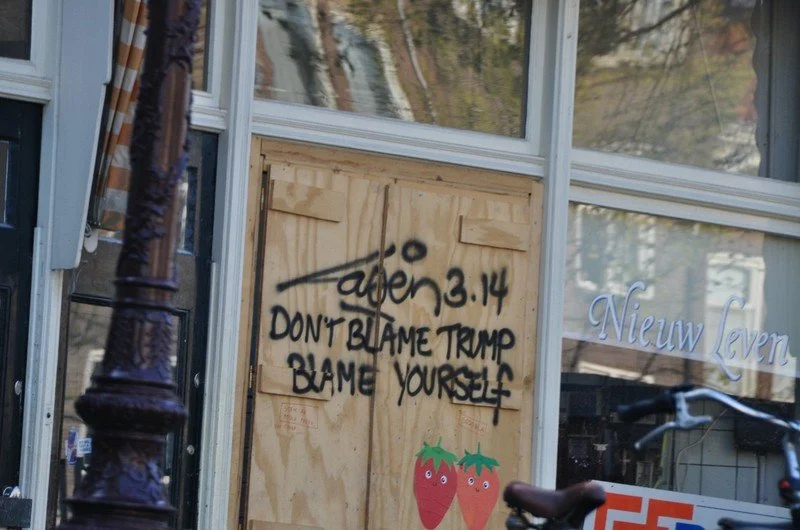 Laser 3.14
DON'T BLAME TRUMP
BLAME YOURSELF
Nieuw Leven